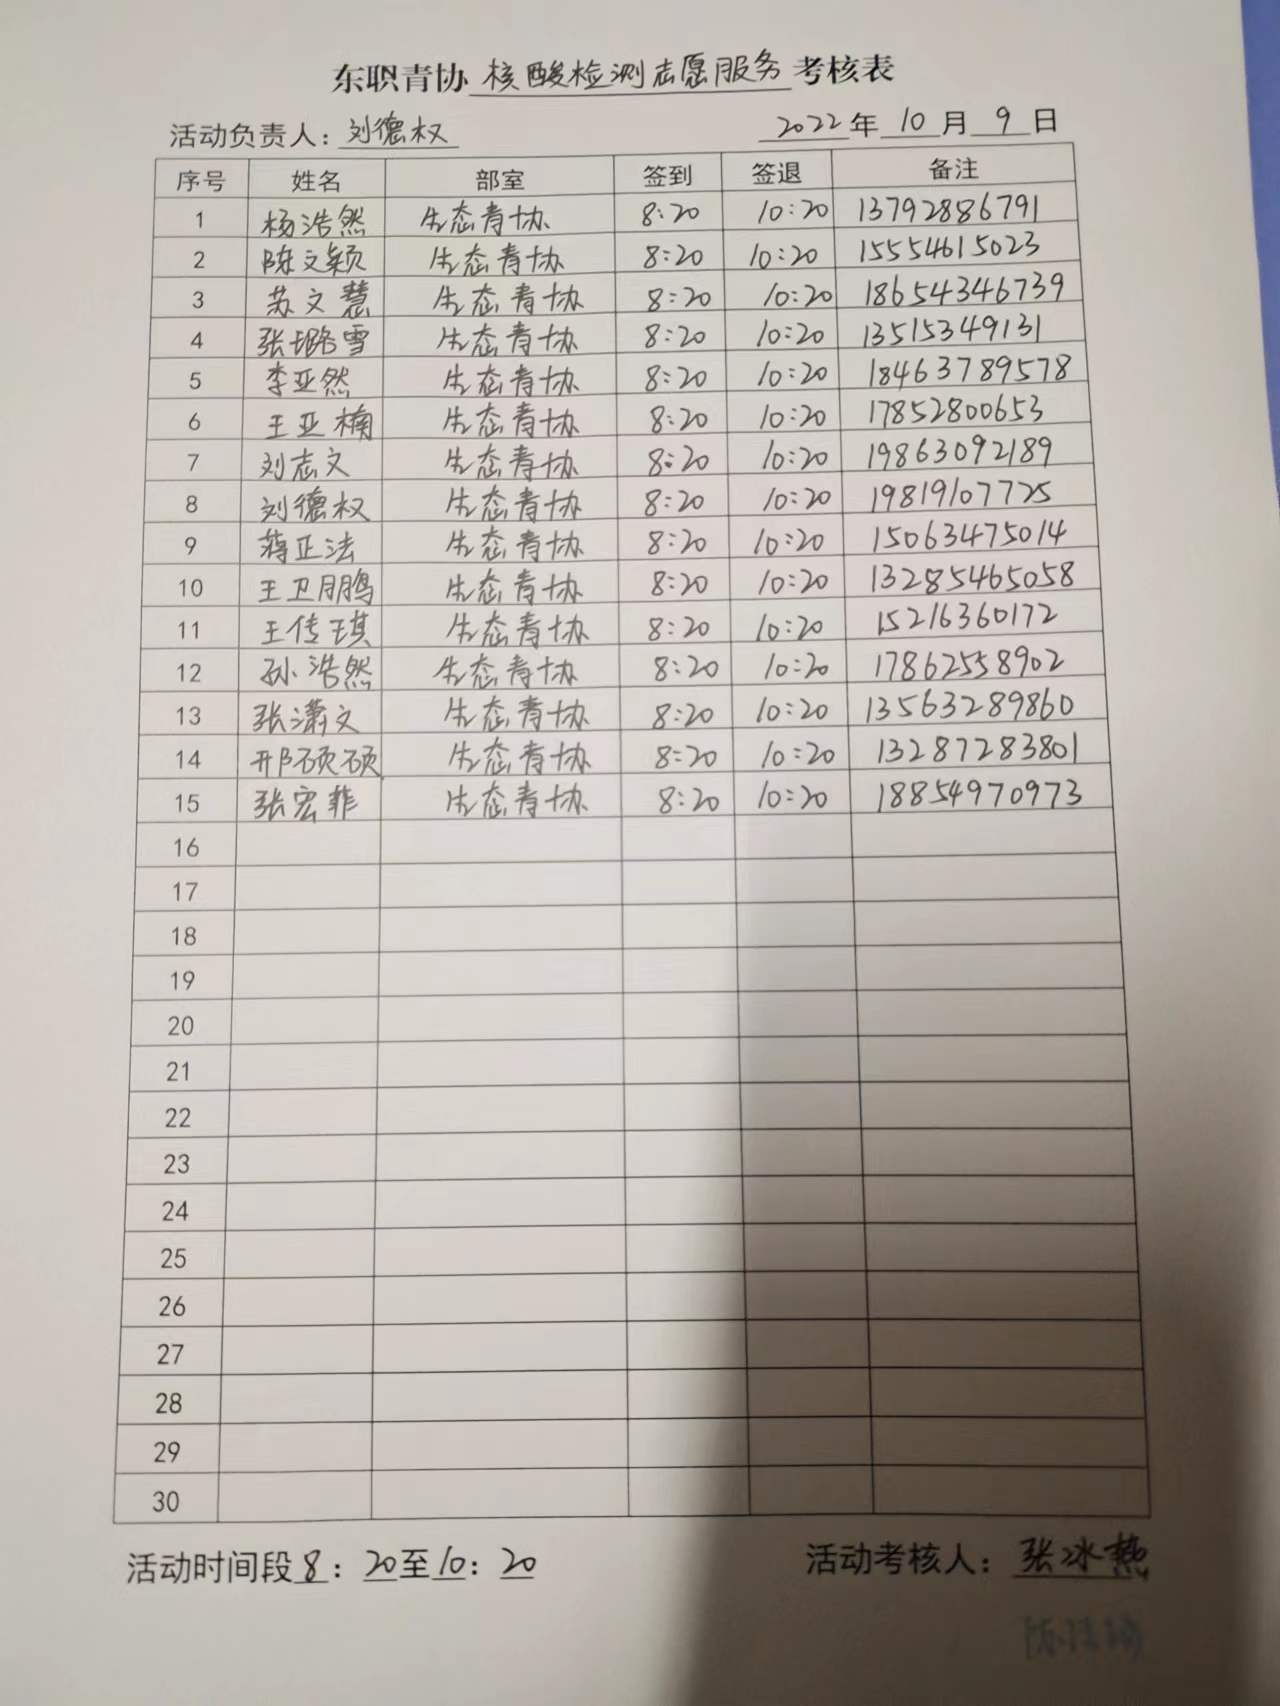 东职青协 核酸检测志愿服务 考核表
活动负责人：刘德权 2022年10月9日
序号 姓名 部室 签到 签退 备注
1 杨浩然 生态青协 8:20 10:20 13792886791
2 陈文颖 生态青协 8:20 10:20 15554615023
3 苏文慧 生态青协 8:20 10:20 18654346739
4 张璐雪 生态青协 8:20 10:20 13515349131
5 李亚然 生态青协 8:20 10:20 18463789578
6 王亚楠 生态青协 8:20 10:20 17852800653
7 刘志文 生态青协 8:20 10:20 19863092189
8 刘德权 生态青协 8:20 10:20 19819107725
9 蒋正法 生态青协 8:20 10:20 15063475014
10 王卫鹏 生态青协 8:20 10:20 13285465058
11 王传琪 生态青协 8:20 10:20 15216360172
12 孙浩然 生态青协 8:20 10:20 17862558902
13 张潇文 生态青协 8:20 10:20 13563289860
14 邢硕硕 生态青协 8:20 10:20 13287283801
15 张宏菲 生态青协 8:20 10:20 18854970973
16
17
18
19
20
21
22
23
24
25
26
27
28
29
30
活动时间段8：20至10：20 活动考核人：张冰燕